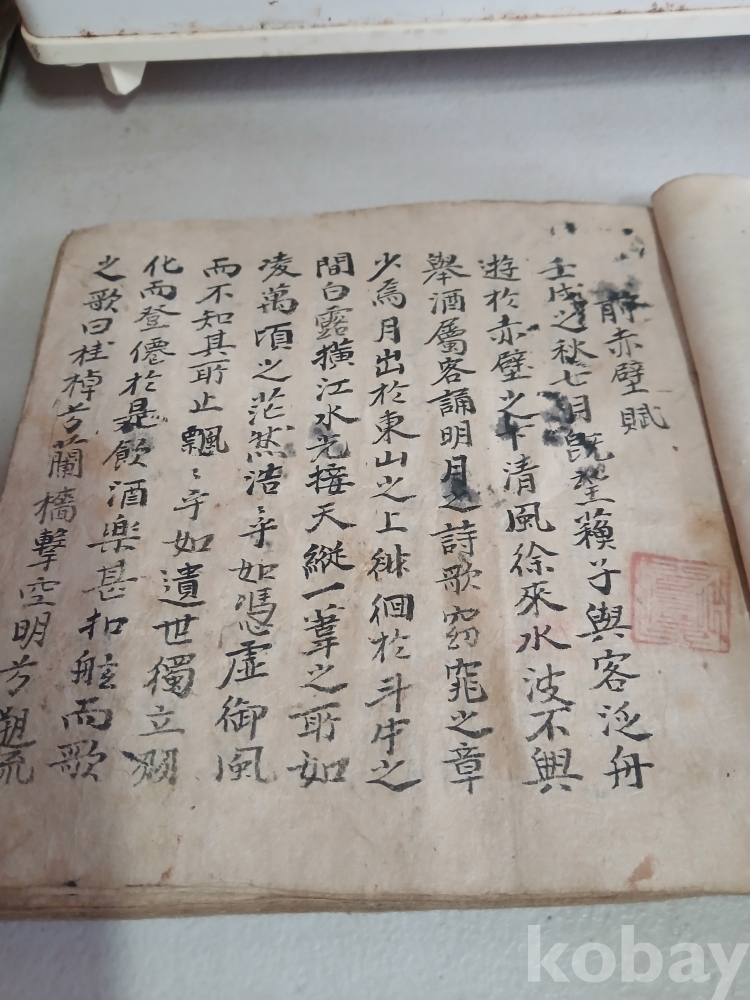 前赤壁賦
壬戌之秋七月旣望蘓子與客泛舟
遊於赤壁之下清風徐來水波不興
舉酒屬客誦明月之詩歌窈窕之章
少焉月出於東山之上徘徊於斗牛之
間白露橫江水光接天縱一葦之所如
凌萬頃之茫然浩〻乎如憑虛御風
而不知其所止飄〻乎如遺世獨立羽
化而登僊於是飮酒樂甚扣舷而歌
之歌曰桂棹兮蘭橋擊空明兮遡流
kobay